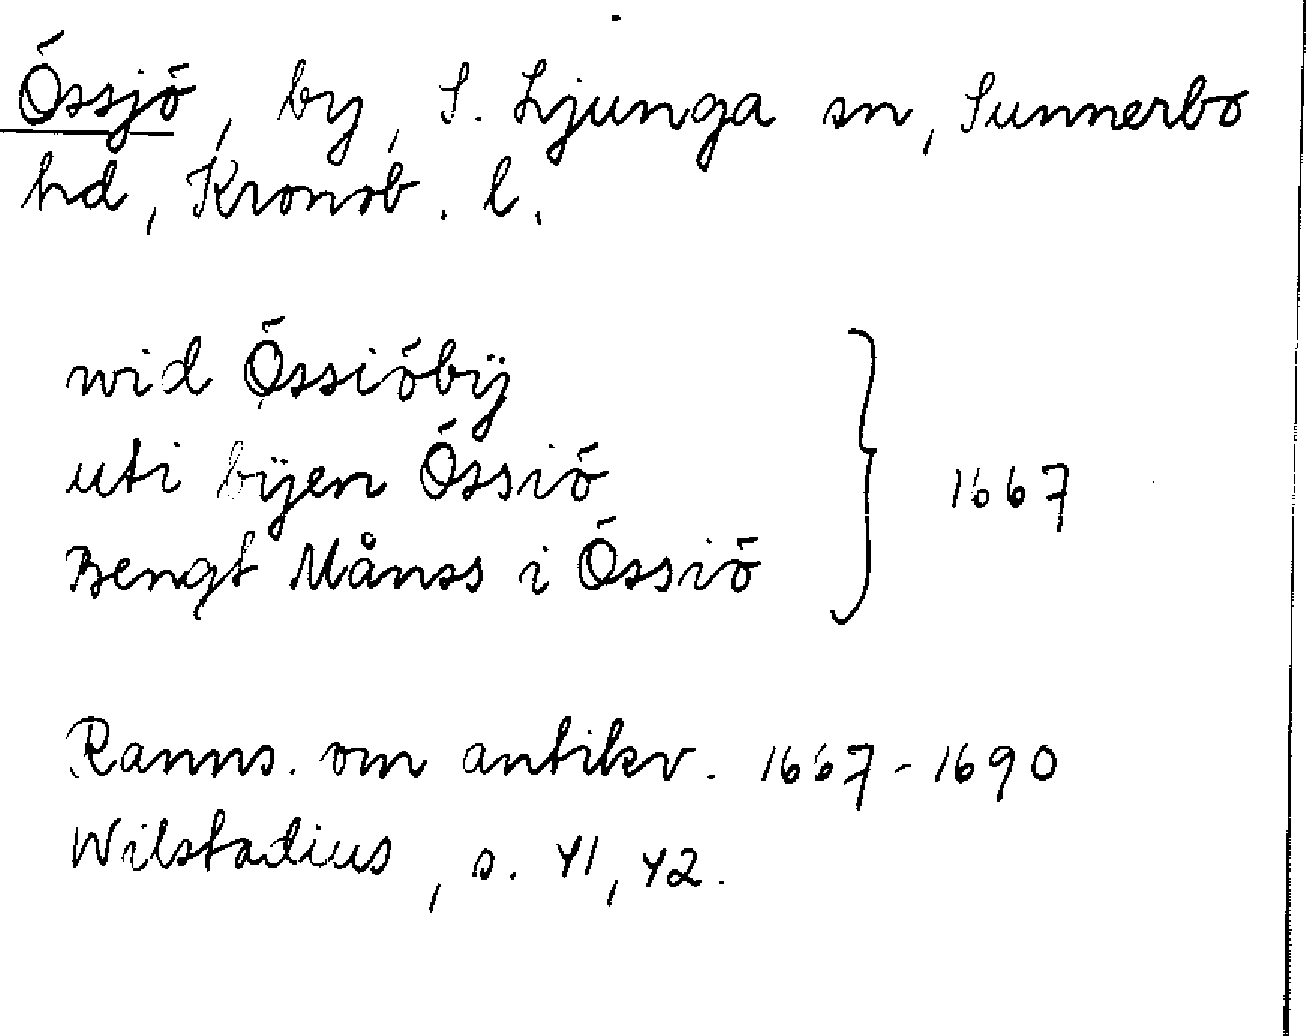 Össjö, by, S. Ljunga sn, Sunnerbo
hd, Kronob. l.
wid Össiöbÿ
uti bÿen Össiö
Bengt Månss i Össiö
1667
Ranns. om antikv. 1667-1690
Wilstadius, s. 41, 42.